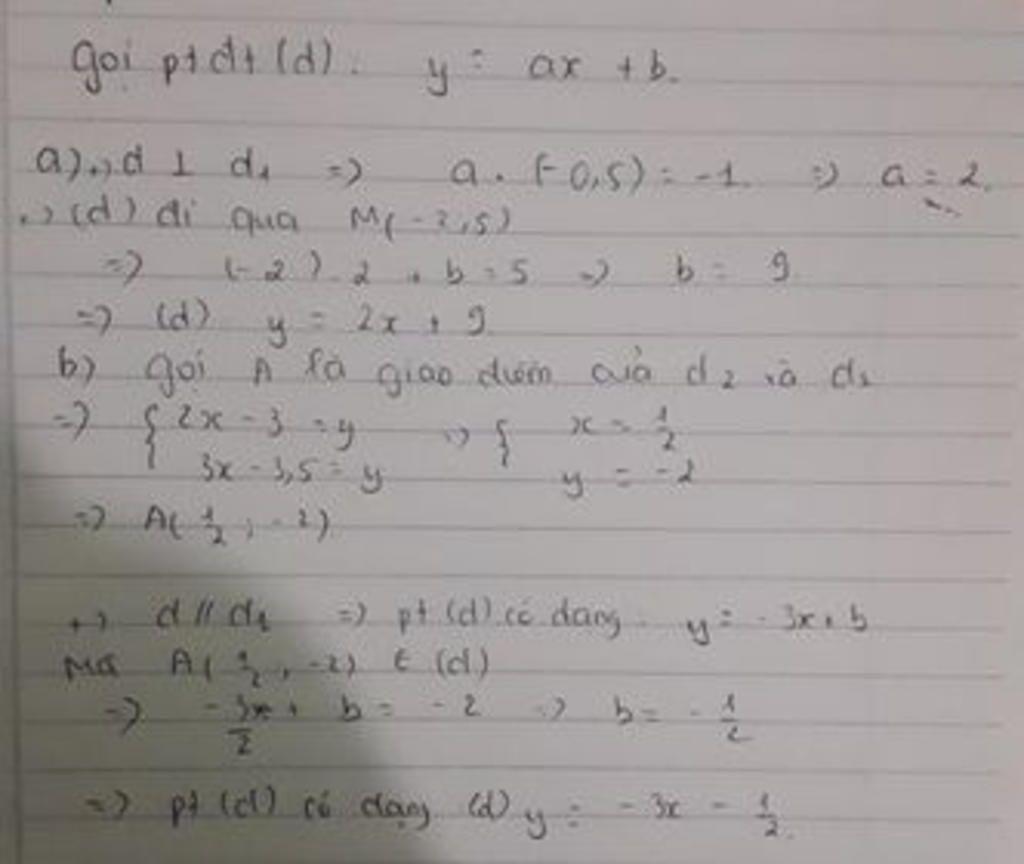 Gọi ptđt (d): y = ax + b.
a) +) d ⊥ d₁ => a. (-0,5) = -1 => a = 2.
+) (d) đi qua M(-2,5)
=> (-2).2 + b = 5 => b = 9
=> (d) y = 2x + 9
b) Gọi A là giao điểm của d₂ và d₃
=> { 2x - 3 = y => { x = 1/2
3x - 3,5 = y y = -2
=> A(1/2; -2)
+) d // d₁ => pt (d) có dạng y = -3x + b
Mà A(1/2, -2) ∈ (d)
=> -3/2 + b = -2 => b = -1/2
=> pt (d) có dạng (d) y = -3x - 1/2.